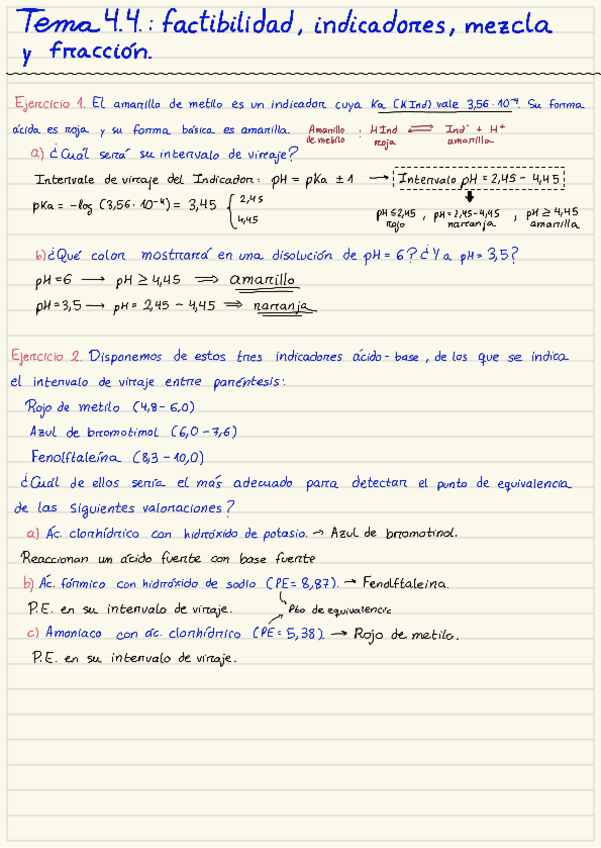 Tema 4.4.: factibilidad, indicadores, mezcla
y fracción.
Ejercicio 1. El amarillo de metilo es un indicador cuya Ka (KInd) vale 3,56·10⁻⁴. Su forma
ácida es roja y su forma básica es amarilla. Amarillo de metilo : HInd ⇌ Ind⁻ + H⁺
roja amarilla
a) ¿Cuál será su intervalo de viraje?
Intervalo de viraje del Indicador: pH = pKa ± 1 → Intervalo pH = 2,45 - 4,45
pKa = -log (3,56·10⁻⁴) = 3,45 { 2,45
4,45
pH ≤ 2,45 , pH = 2,45-4,45 , pH ≥ 4,45
rojo naranja amarilla
b) ¿Qué color mostrará en una disolución de pH = 6? ¿Y a pH = 3,5?
pH = 6 → pH ≥ 4,45 ⇒ amarillo
pH = 3,5 → pH = 2,45 - 4,45 ⇒ naranja
Ejercicio 2. Disponemos de estos tres indicadores ácido-base, de los que se indica
el intervalo de viraje entre paréntesis:
Rojo de metilo (4,8-6,0)
Azul de bromotimol (6,0-7,6)
Fenolftaleína (8,3-10,0)
¿Cuál de ellos sería el más adecuado para detectar el punto de equivalencia
de las siguientes valoraciones?
a) Ác. clorhídrico con hidróxido de potasio. → Azul de bromotinol.
Reaccionan un ácido fuerte con base fuerte
b) Ác. fórmico con hidróxido de sodio (PE = 8,87). → Fenolftaleina.
P.E. en su intervalo de viraje. Pto de equivalencia
c) Amoniaco con ác. clorhídrico (PE = 5,38). → Rojo de metilo.
P.E. en su intervalo de viraje.